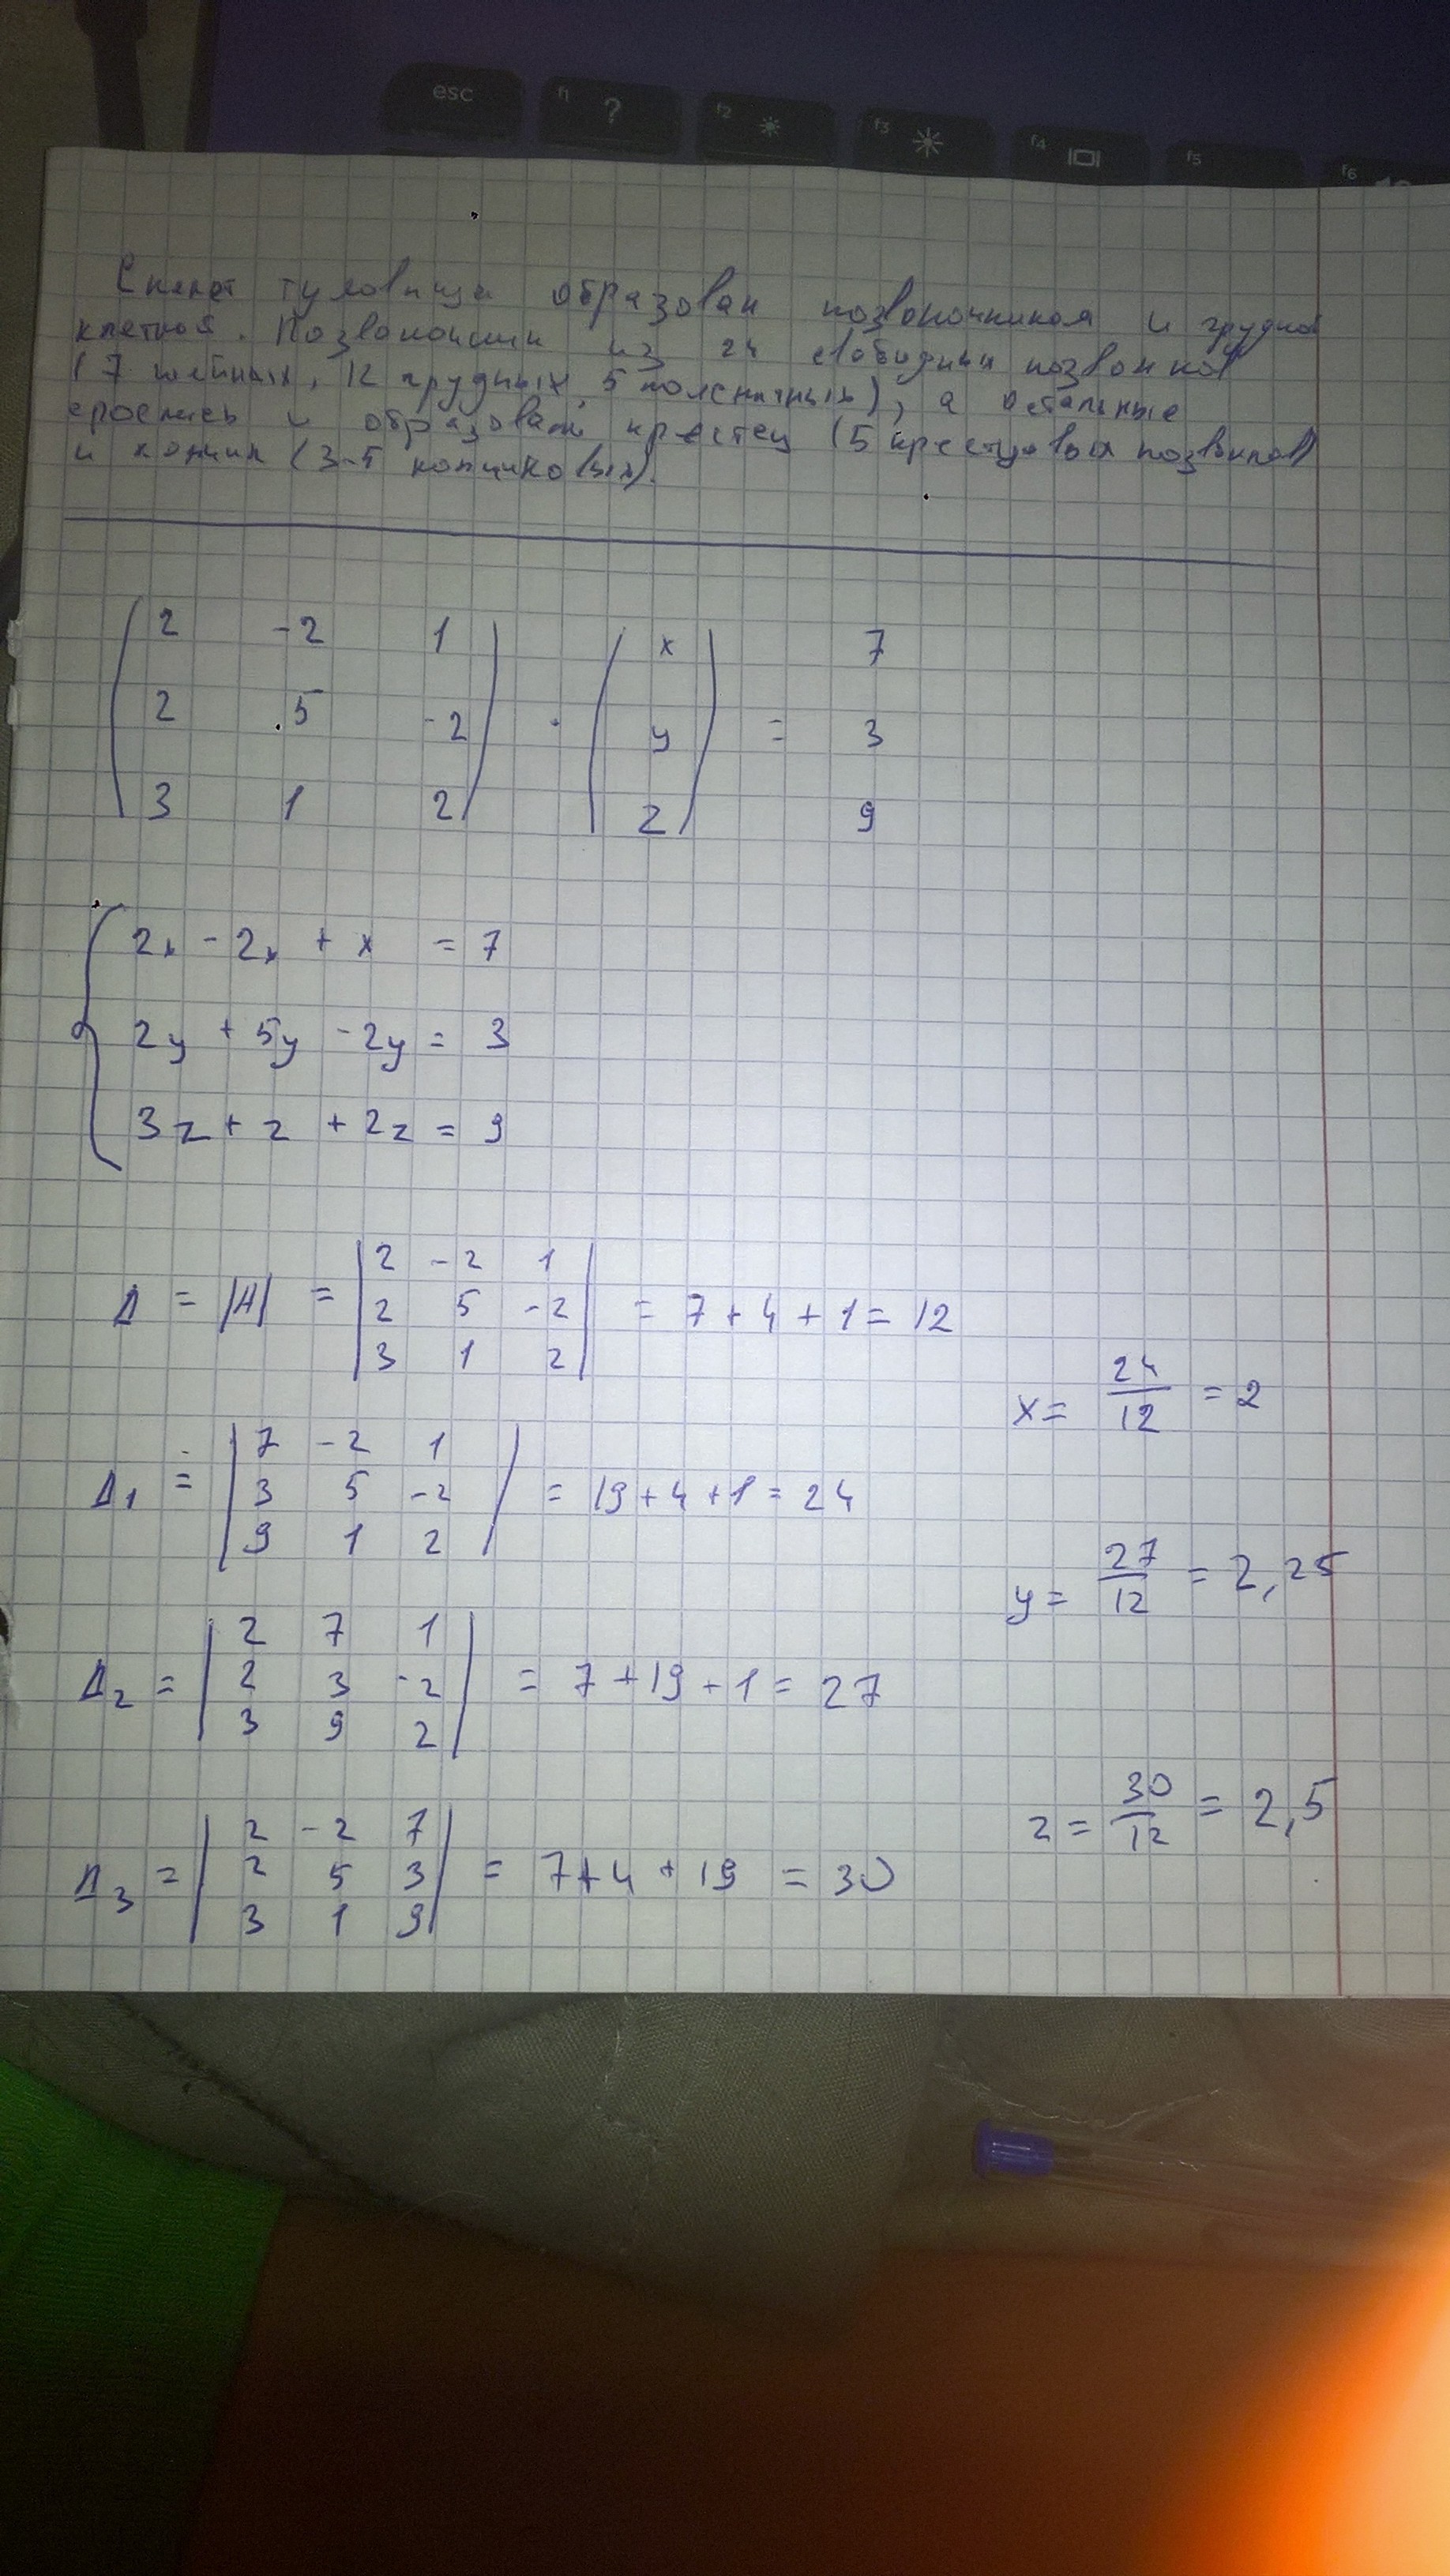 esc f1 ? f2 f3 f4 f5 f6
Скелет туловища образован позвоночником и грудной
клеткой. Позвоночник из 24 свободных позвонков
(7 шейных, 12 грудных, 5 поясничных), а остальные
срослись и образовали крестец (5 крестцовых позвонков)
и копчик (3-5 копчиковых).
( 2 -2 1 ) ( x ) 7
( 2 5 -2 ) · ( y ) = 3
( 3 1 2 ) ( z ) 9
{ 2x - 2x + x = 7
2y + 5y - 2y = 3
3z + z + 2z = 9
| 2 -2 1 |
Δ = |A| = | 2 5 -2 | = 7 + 4 + 1 = 12
| 3 1 2 |
x = 24/12 = 2
| 7 -2 1 |
Δ1 = | 3 5 -2 | = 19 + 4 + 1 = 24
| 9 1 2 |
y = 27/12 = 2,25
| 2 7 1 |
Δ2 = | 2 3 -2 | = 7 + 19 + 1 = 27
| 3 9 2 |
z = 30/12 = 2,5
| 2 -2 7 |
Δ3 = | 2 5 3 | = 7 + 4 + 19 = 30
| 3 1 9 |